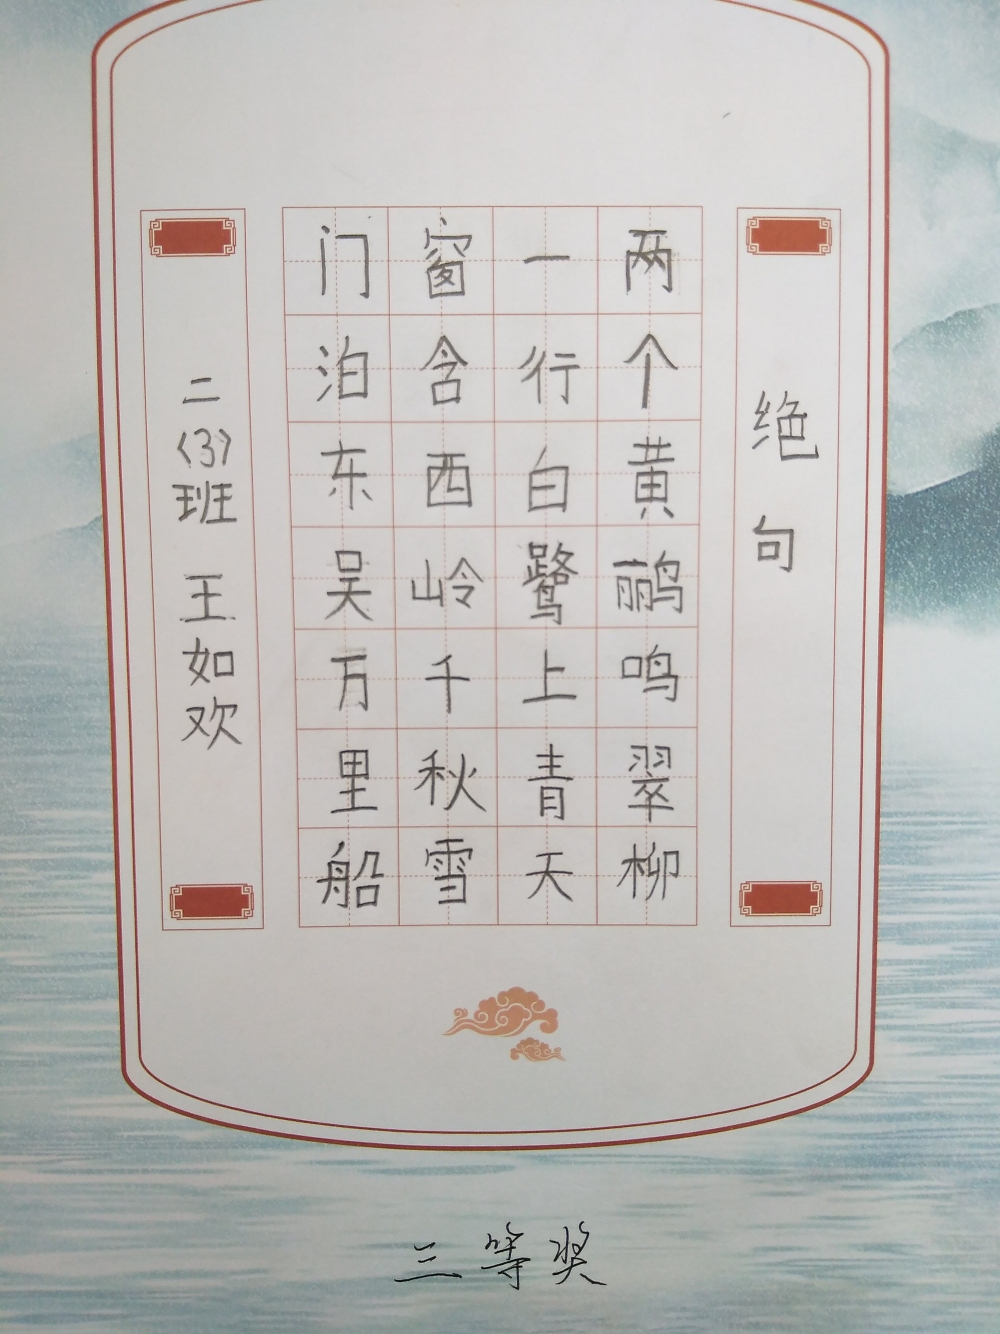 绝句
两个黄鹂鸣翠柳
一行白鹭上青天
窗含西岭千秋雪
门泊东吴万里船
二(3)班 王如欢
三等奖